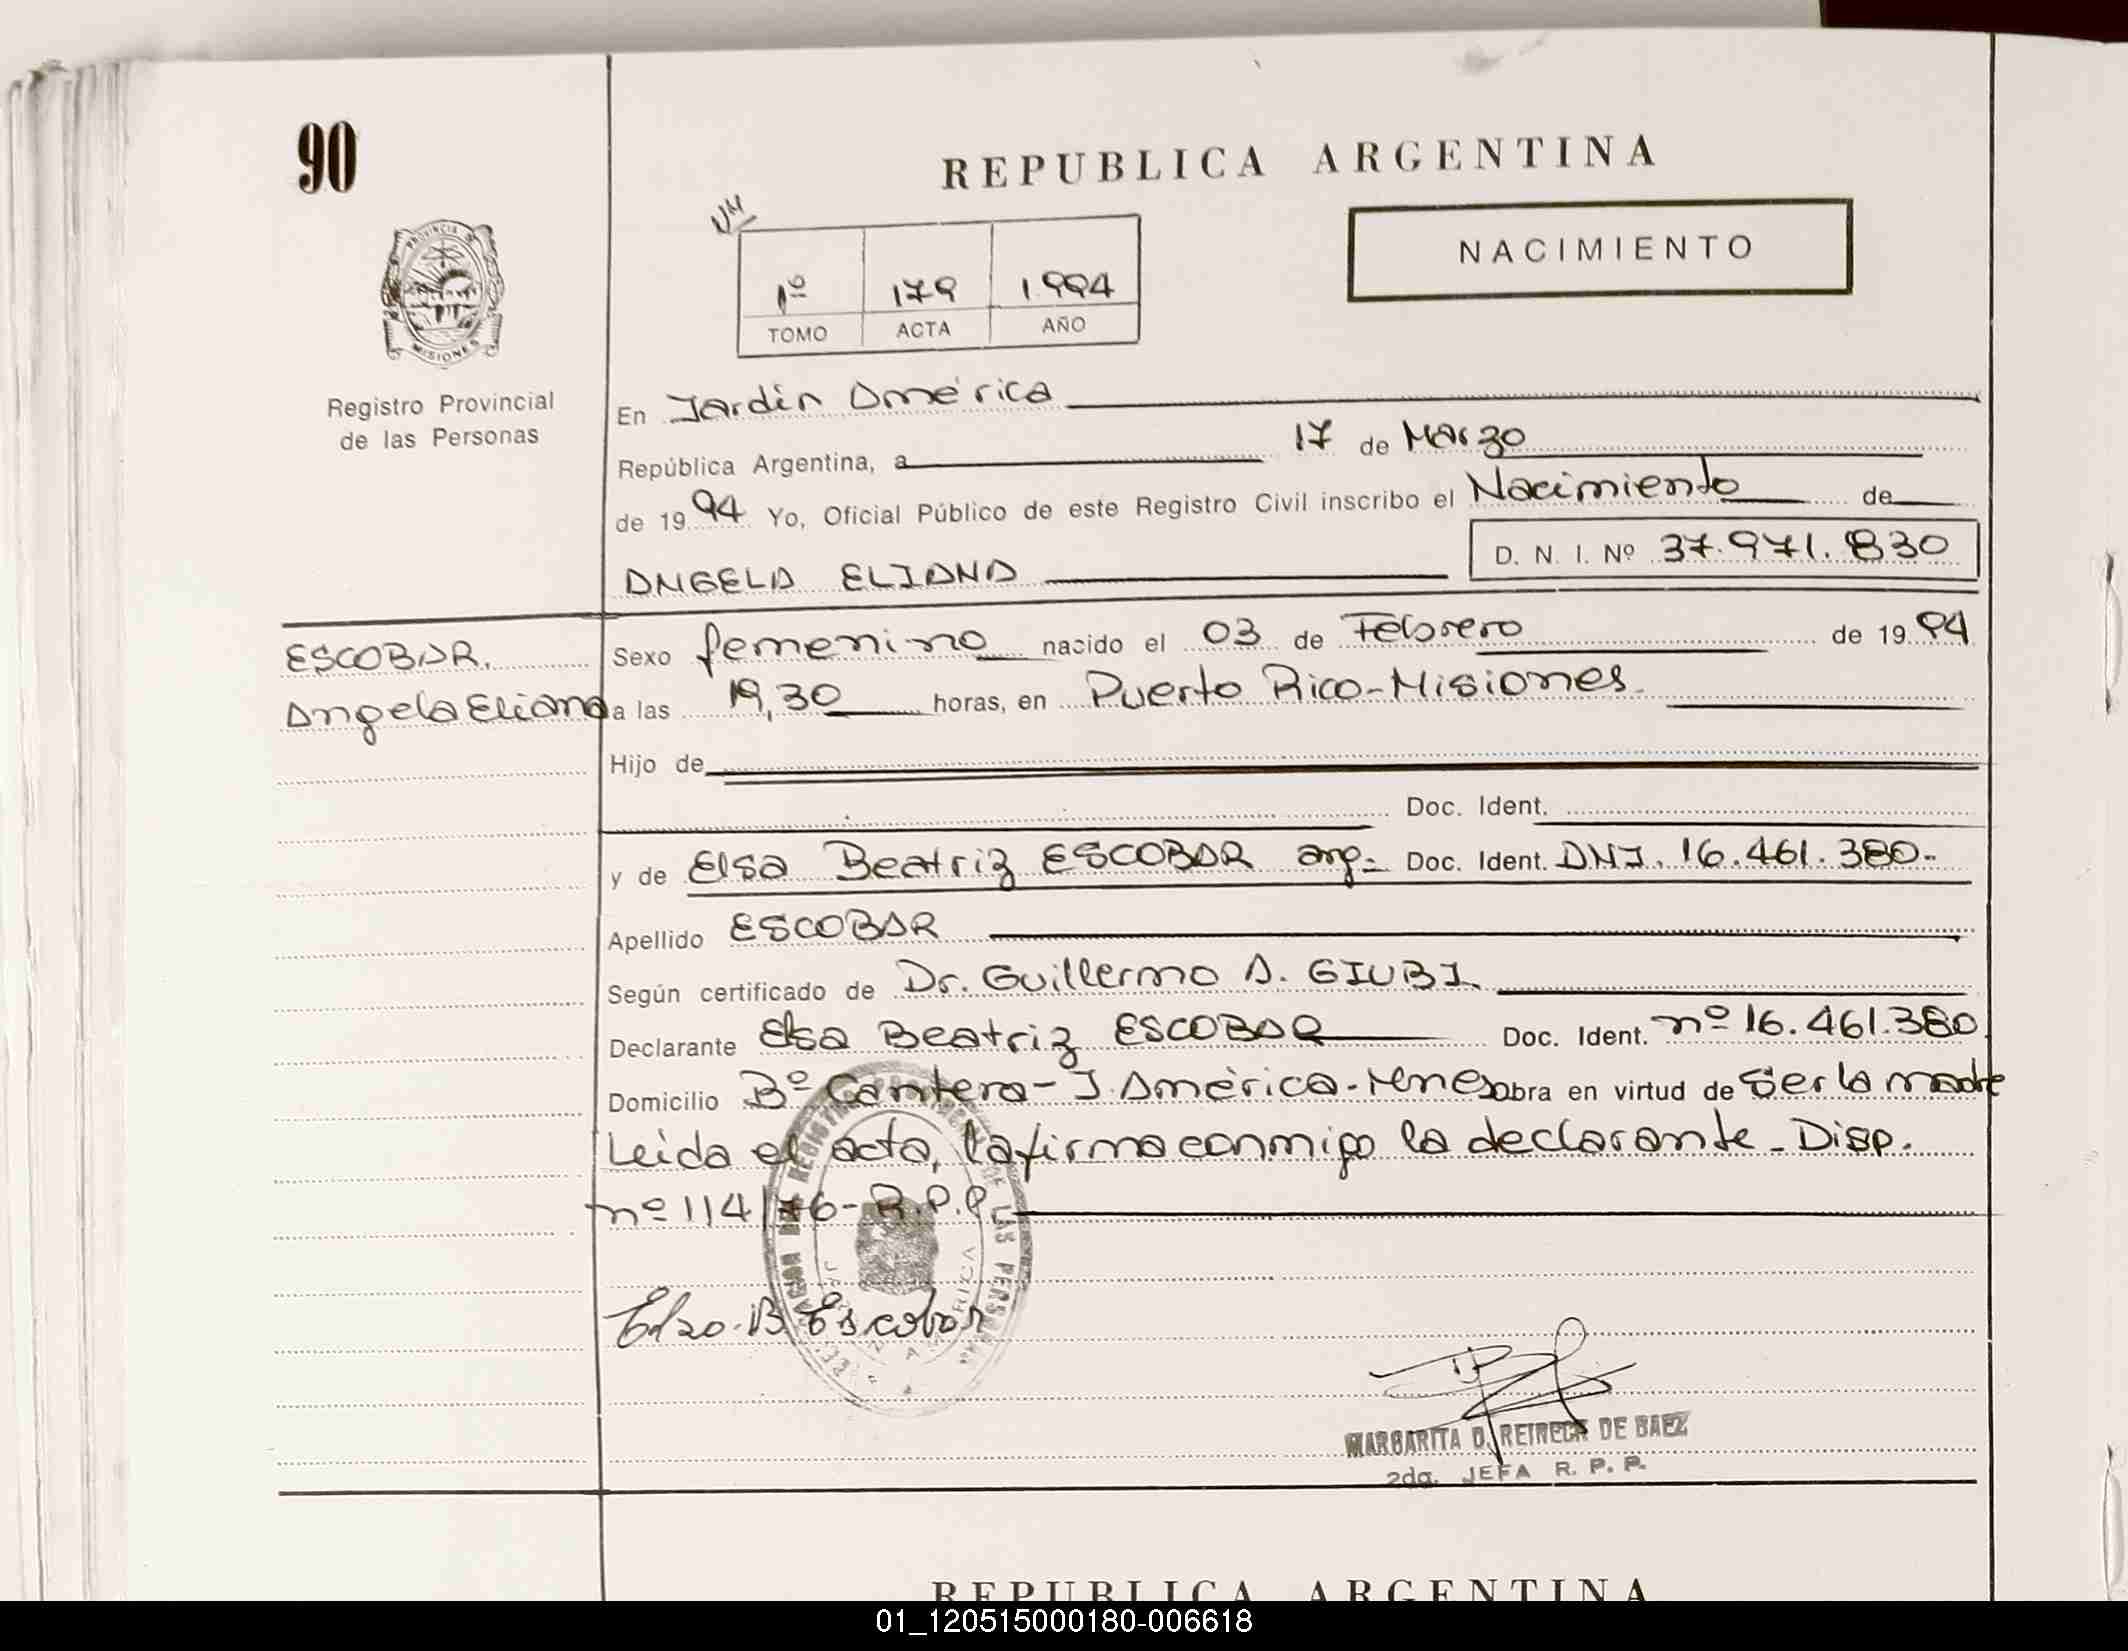 90
REPUBLICA ARGENTINA
NACIMIENTO
1º 179 1994
TOMO ACTA AÑO
PROVINCIA DE MISIONES
Registro Provincial
de las Personas
En Jardín América
República Argentina, a 17 de Marzo
de 1994 Yo, Oficial Público de este Registro Civil inscribo el Nacimiento de
ANGELA ELIANA D. N. I. Nº 37.971.830
ESCOBAR.
Angela Eliana
Sexo femenino nacido el 03 de Febrero de 1994
a las 19,30 horas, en Puerto Rico-Misiones.
Hijo de
Doc. Ident.
y de Elsa Beatriz ESCOBAR arg- Doc. Ident. DNI. 16.461.380-
Apellido ESCOBAR
Según certificado de Dr. Guillermo A. GIUBI.
Declarante Elsa Beatriz ESCOBAR Doc. Ident. nº 16.461.380
Domicilio Bº Cantera- J. América-Mnes obra en virtud de Ser la madre
Leida el acta, la firma conmigo la declarante- Disp.
nº 114/76- R.P.P.
Elsa B Escobar
MARGARITA D. REIRECK DE BAEZ
2da. JEFA R. P. P.
REPUBLICA ARGENTINA
01_120515000180-006618